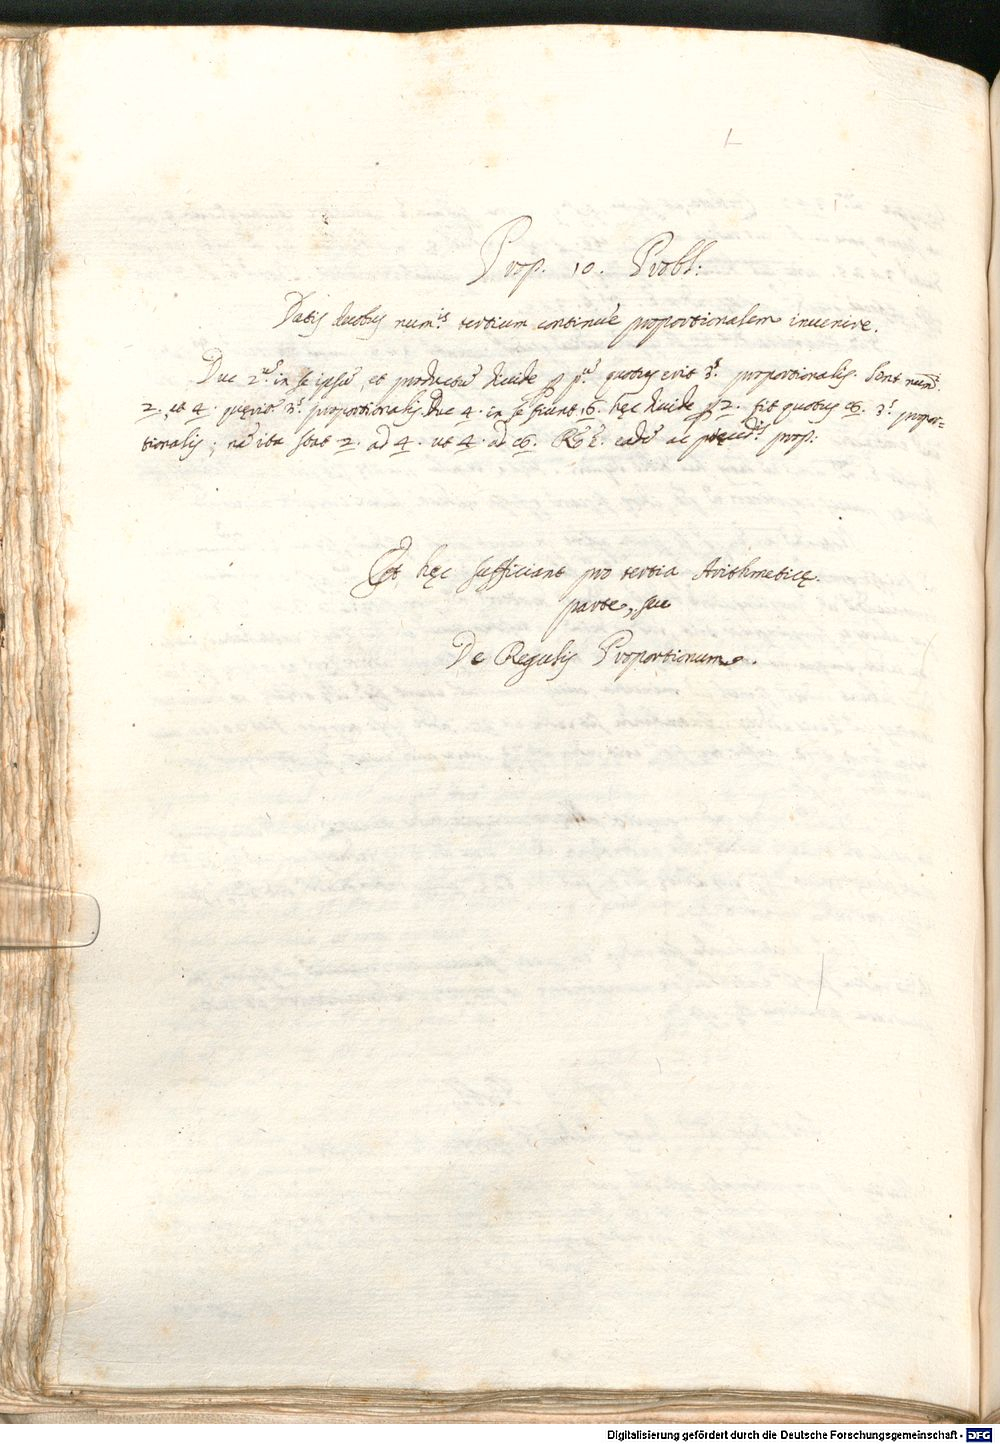 Prop. 10. Probl:
Datis duobus num.is tertium continuè proportionalem inuenire.
Duc 2.um in se ipsū, et productū diuide ꝑ p.m quotus erit 3.s proportionalis. Sint num.i
2. et 4. quęrit.r 3.s proportionalis. Duc 4. in se fiunt 16. hęc diuide ꝑ 2. fit quotus 8. 3.s propor-
tionalis; nā ita stat 2. ad 4. ut 4. ad 8. Rō ē. eadē ac pręced.tis prop:
Et hęc sufficiant pro tertia Arithmeticę
parte, seu
De Regulis Proportionum.
Digitalisierung gefördert durch die Deutsche Forschungsgemeinschaft - DFG